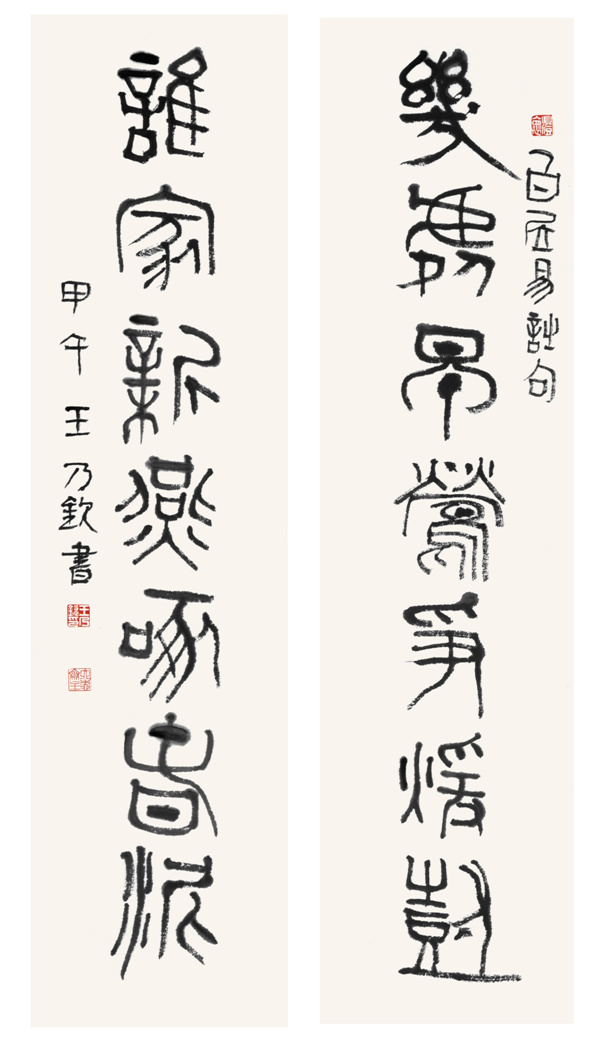 白居易詩句
幾處早鶯爭煖樹
誰家新燕啄春泥
甲午 王乃欽書